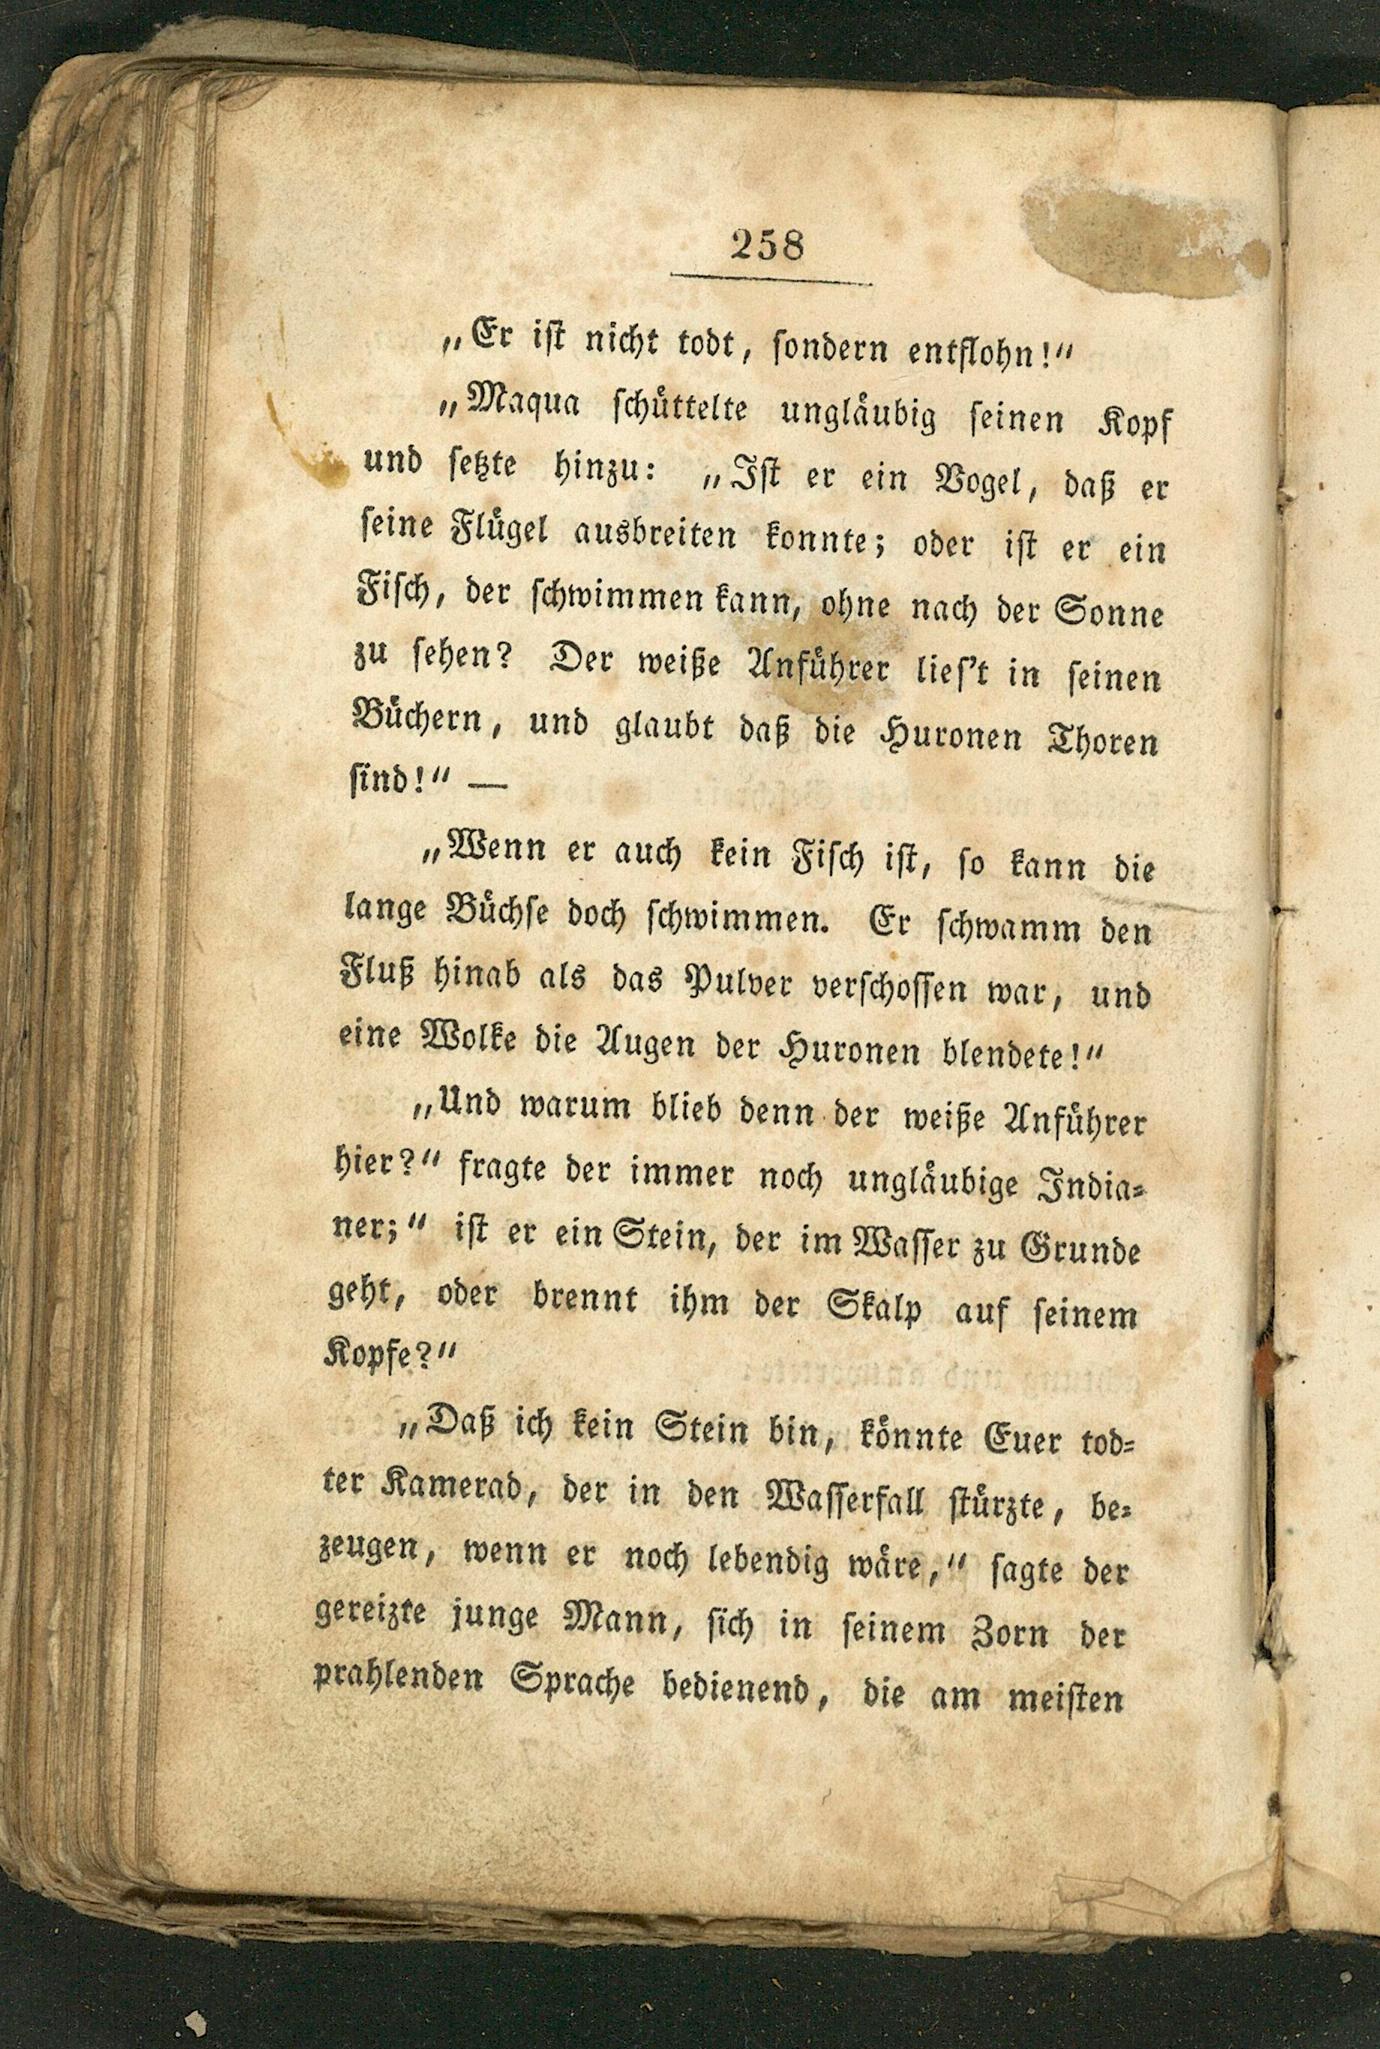 258
„Er ist nicht todt, sondern entflohn!“
„Maqua schüttelte ungläubig seinen Kopf
und setzte hinzu: „Ist er ein Vogel, daß er
seine Flügel ausbreiten konnte; oder ist er ein
Fisch, der schwimmen kann, ohne nach der Sonne
zu sehen? Der weiße Anführer lies't in seinen
Büchern, und glaubt daß die Huronen Thoren
sind!“ —
„Wenn er auch kein Fisch ist, so kann die
lange Büchse doch schwimmen. Er schwamm den
Fluß hinab als das Pulver verschossen war, und
eine Wolke die Augen der Huronen blendete!“
„Und warum blieb denn der weiße Anführer
hier?“ fragte der immer noch ungläubige India-
ner;“ ist er ein Stein, der im Wasser zu Grunde
geht, oder brennt ihm der Skalp auf seinem
Kopfe?“
„Daß ich kein Stein bin, könnte Euer tod-
ter Kamerad, der in den Wasserfall stürzte, be-
zeugen, wenn er noch lebendig wäre,“ sagte der
gereizte junge Mann, sich in seinem Zorn der
prahlenden Sprache bedienend, die am meisten